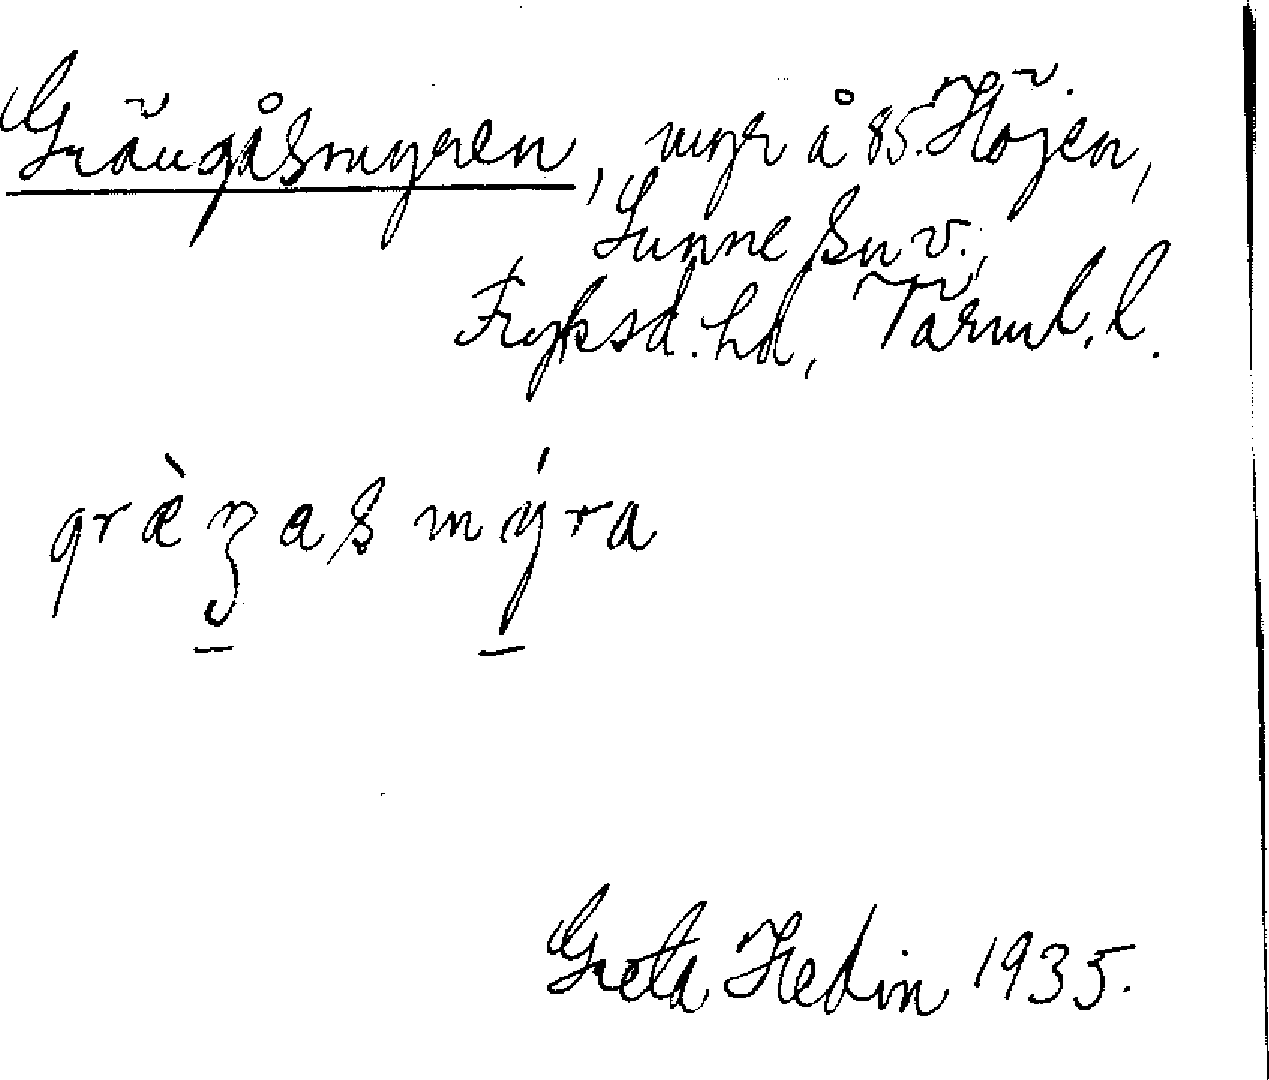 Grängåsmyren, myr å 85. Höjen,
Sunne sn v.,
Fryksd. hd, Värml. l.
græ̀ŋasmýra
Greta Hedin 1935.